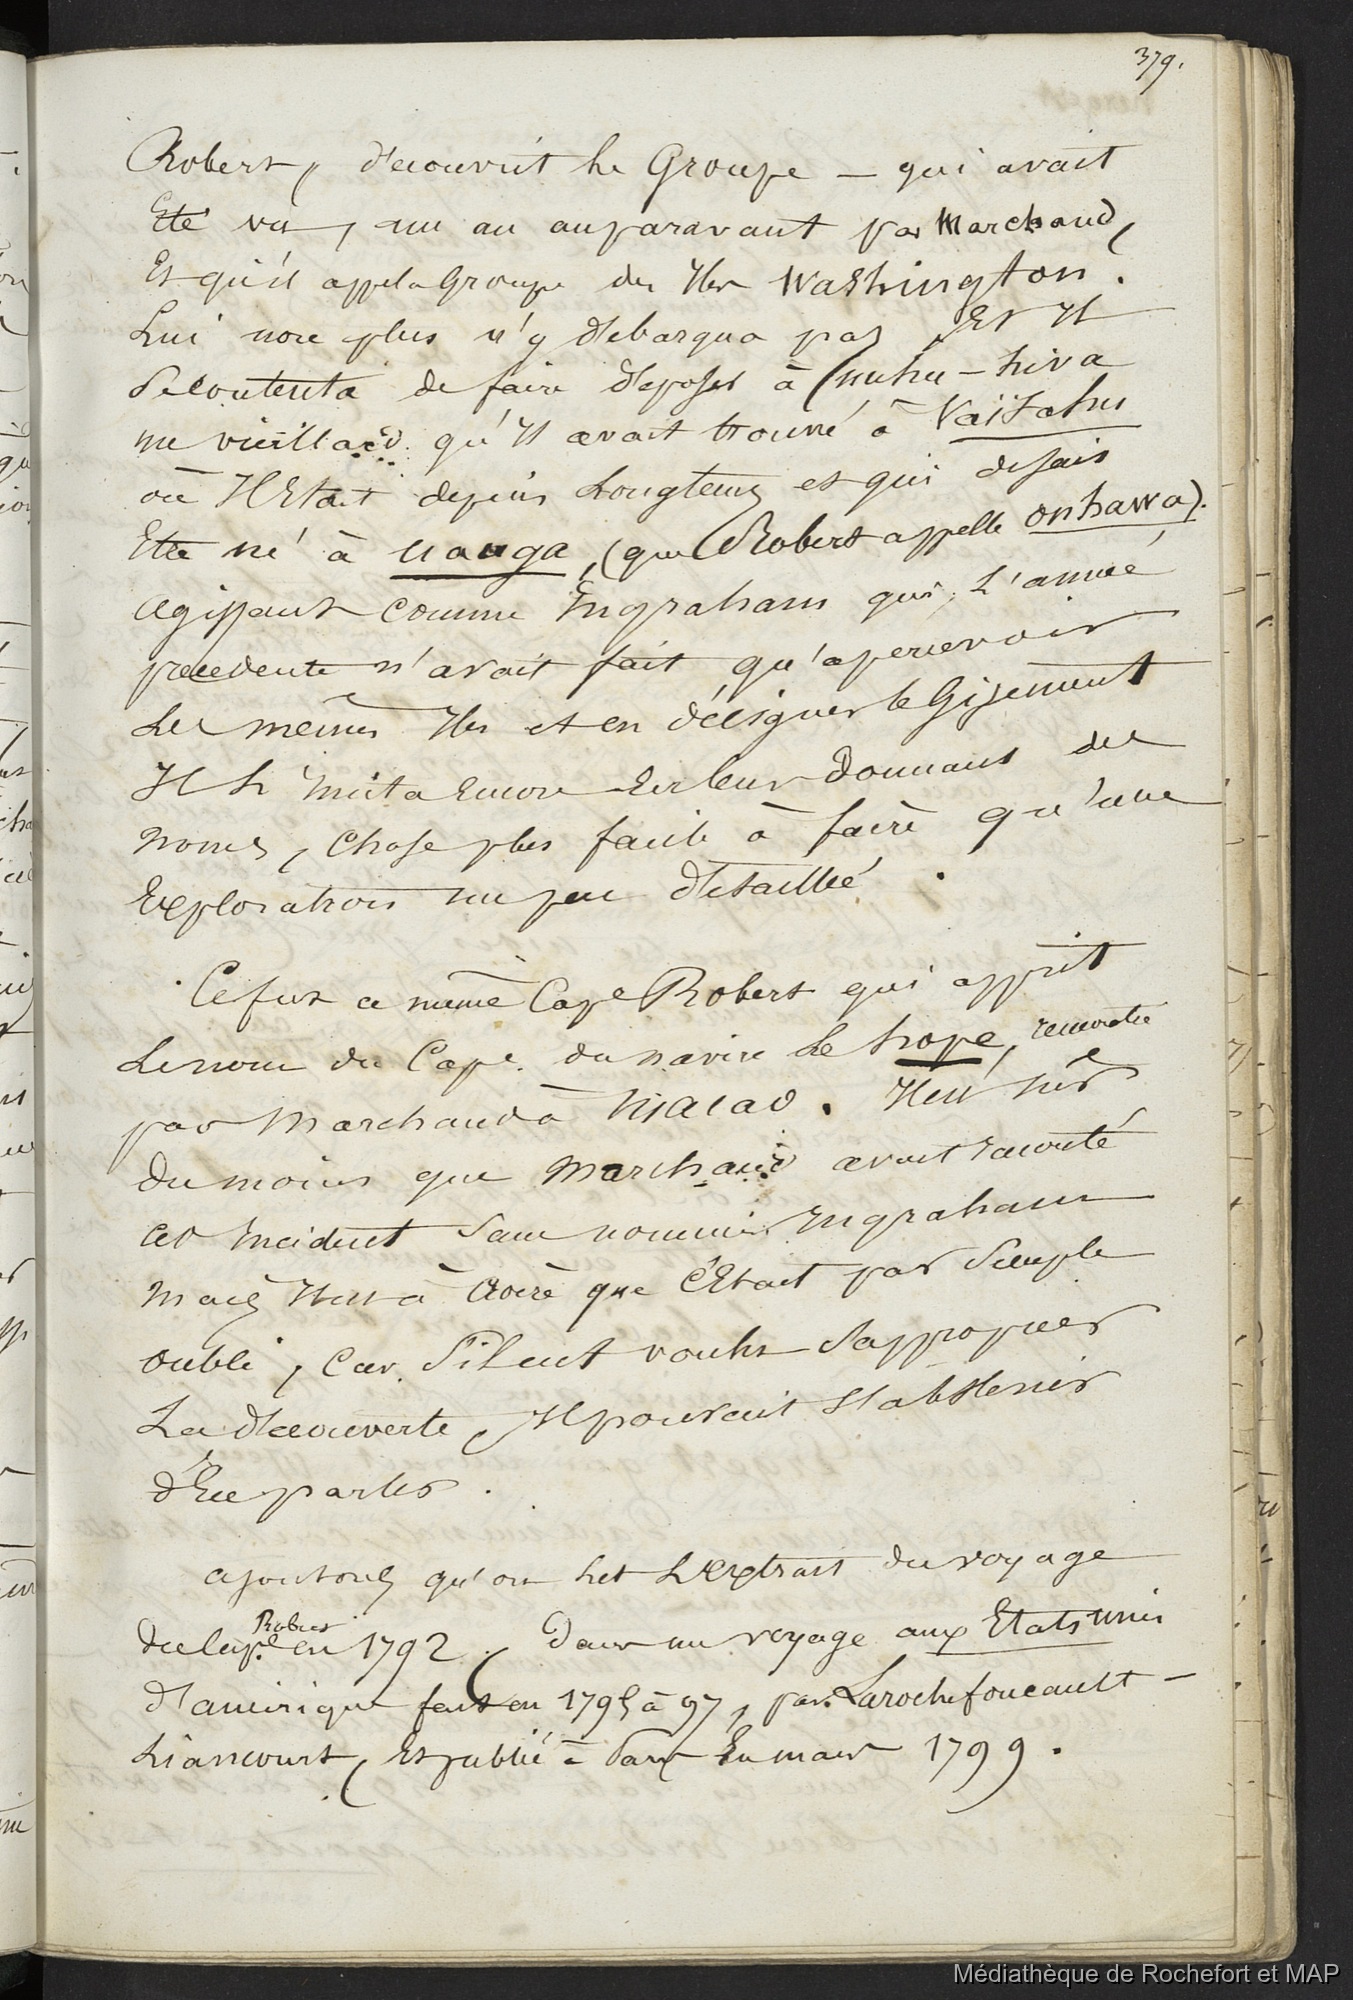 379.
Robert, découvrit le Groupe – qui avait
Eté vu, un an auparavant par Marchand,
Et qu'il appela Groupe des Iles Washington.
Lui non plus n'y débarqua pas, Et Il
Secontenta de faire déposer à (nuhu-hiva
un vieillard qu'Il avait trouvé à Vaïtahu
où Il Etait depuis Longtems et qui disait
Etre né à uauga, (que Robert appelle onhawa).
Agissant comme Ingraham qui, L'année
precedente n'avait fait qu'apercevoir
Les mêmes Iles et en désigner le Gisement
Il L'imita Encore En leur Donnant des
noms, Chose plus facile à faire qu'une
Exploration un peu détaillée.
Ce fut ce même Cape Robert qui apprit
Le nom du Cape. du navire Le hope, rencontré
par Marchand à Macao. Il est sûr
du moins que Marchand avait raconté
cet Incident Sans nommer Ingraham
mais Il est à croire que c'Etait par Simple
oubli, Car, S'il eut voulu S'approprier
La découverte, Il pouvait S'abstenir
d'En parler.
ajoutons qu'on lit L'extrait du voyage
du Cape. Robert en 1792, Dans un voyage aux Etats unis
d'amérique fait en 1795 à 97, par Larochefoucault-
Liancourt, Et publié à Paris En mars 1799.
Médiathèque de Rochefort et MAP